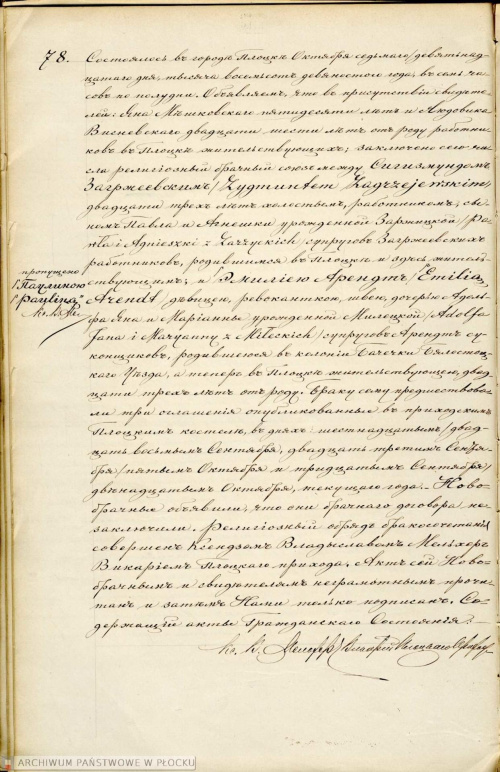 78. Состоялось въ городѣ Плоцкѣ Октября седьмаго /девятнад-
цатаго дня, тысяча восемьсотъ девяностаго года, въ семь ча-
совъ по полудни. Объявляемъ, что въ присутствіи свидѣте-
лей: Яна Мышковскаго пятидесяти лѣтъ и Людовика
Висневскаго двадцати шести лѣтъ отъ роду работни-
ковъ въ Плоцкѣ жительствующихъ; заключено сего чи-
сла религіозный брачный союзъ между Сигизмундомъ
Загржеевскимъ, /Zygmuntem Zagrzejewskim/
двадцати трехъ лѣтъ холостымъ, работникомъ, сы-
номъ Павла и Агнешки урожденной Заржицкой /Pa-
wła i Agnieszki z Zarzyckich/ супруговъ Загржеевскихъ
работниковъ, родившимся въ Плоцкѣ и здѣсь житель-
ствующимъ; и Эмиліею Арендтъ /Emilią
Arendt/ дѣвицею, швеею, дочерью Адоль-
фа Яна и Маріанны урожденной Милецкой /Adolfa
Jana i Maryanny z Mileckich/ супруговъ Арендтъ су-
конщиковъ, родившеюся въ колоніи Бялосток-
скаго Уѣзда, а теперь въ Плоцкѣ жительствующею, двад-
цати трехъ лѣтъ отъ роду. Браку сему предшествова-
ли три оглашенія опубликованныя въ приходскомъ
Плоцкомъ костелѣ, въ дняхъ шестнадцатымъ /двад-
цать восьмымъ Сентября, двадцать третьимъ Сентя-
бря /пятымъ Октября и тридцатымъ Сентября/
двѣнадцатымъ Октября, текущаго года. Ново-
брачные объявили, что они брачнаго договора не
заключили. Религіозный обрядъ бракосочетанія
совершенъ Ксендзомъ Владыславомъ Мельхеръ
Викаріемъ Плоцкаго прихода. Актъ сей Ново-
брачнымъ и свидѣтелямъ неграмотнымъ прочи-
танъ и затѣмъ Нами только подписанъ. Со-
держащій акты Гражданскаго Состоянія.
пропущено
"Паулиною
"Pauliną"
ARCHIWUM PAŃSTWOWE W PŁOCKU